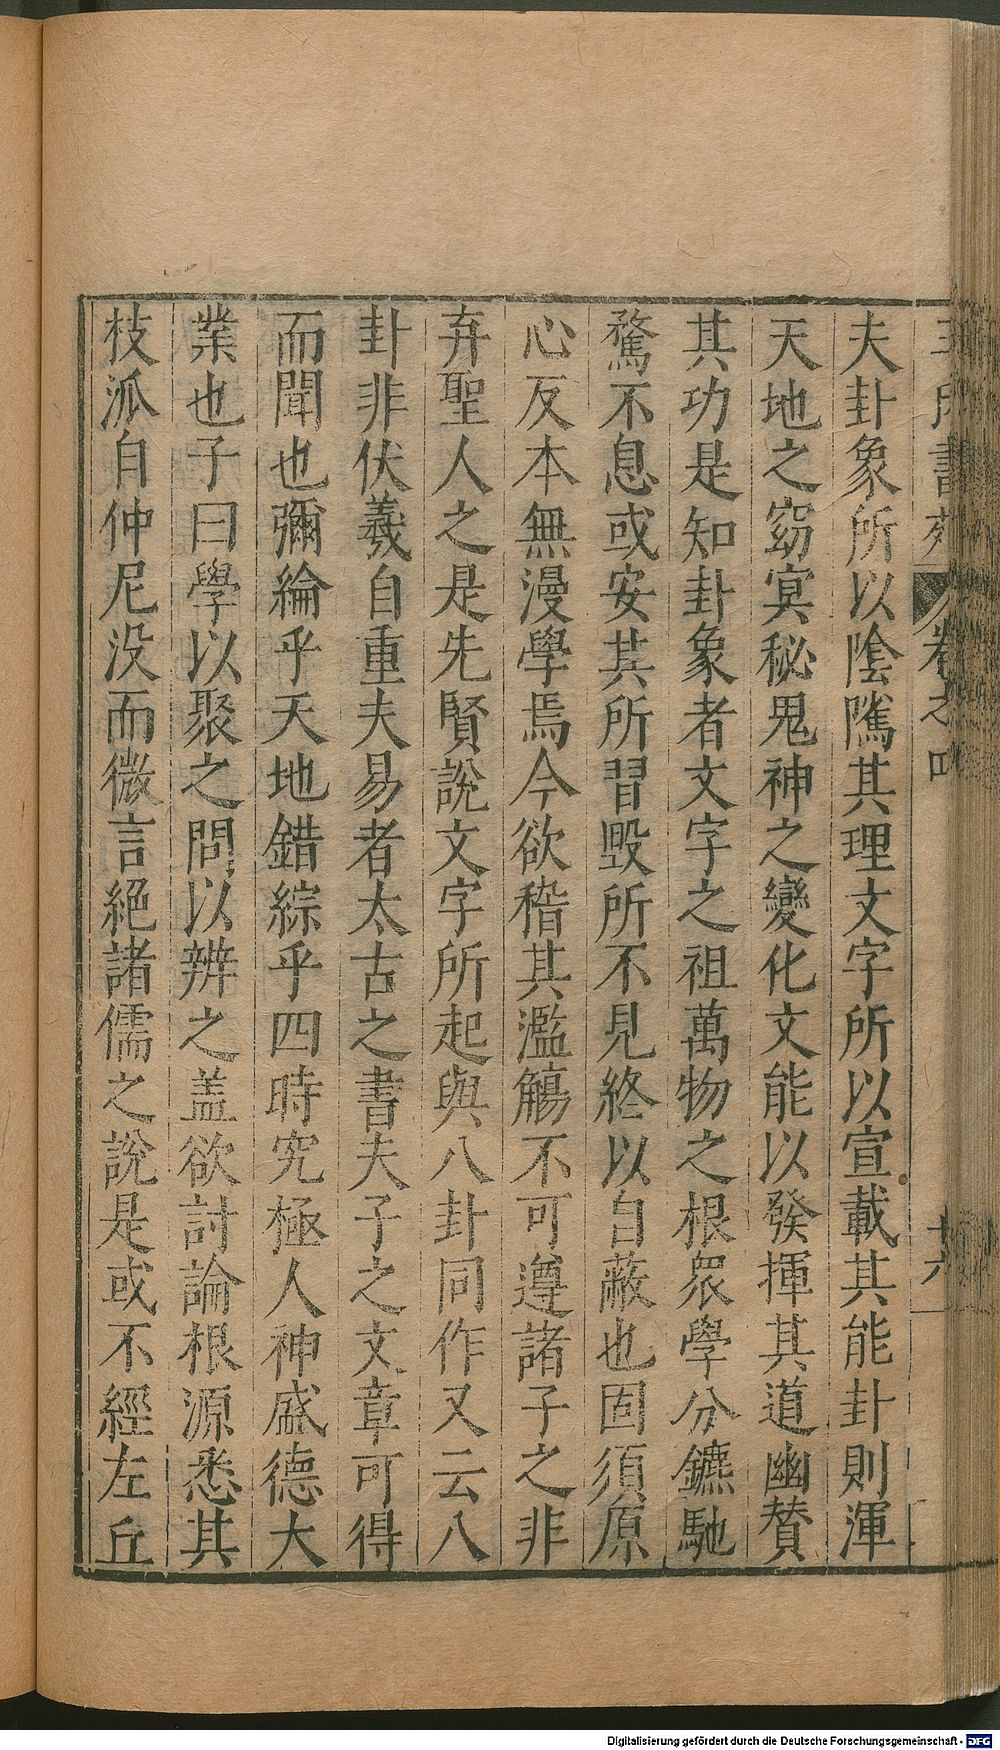 書苑 卷之四 十六
夫卦象所以陰隲其理文字所以宣載其能卦則渾
天地之窈冥秘鬼神之變化文能以發揮其道幽贊
其功是知卦象者文字之祖萬物之根衆學分鑣馳
騖不息或安其所習毀所不見終以自蔽也固須原
心反本無漫學焉今欲稽其濫觴不可遵諸子之非
弃聖人之是先賢說文字所起與八卦同作又云八
卦非伏羲自重夫易者太古之書夫子之文章可得
而聞也彌綸乎天地錯綜乎四時究極人神盛德大
業也子曰學以聚之問以辨之盖欲討論根源悉其
枝泒自仲尼没而微言絕諸儒之說是或不經左丘
Digitalisierung gefördert durch die Deutsche Forschungsgemeinschaft - DFG